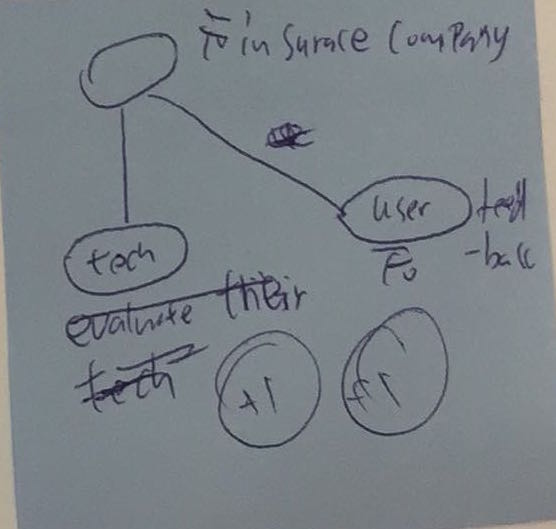 insurace Company
user feed
tech -back
evaluate their
tech
+1 +1